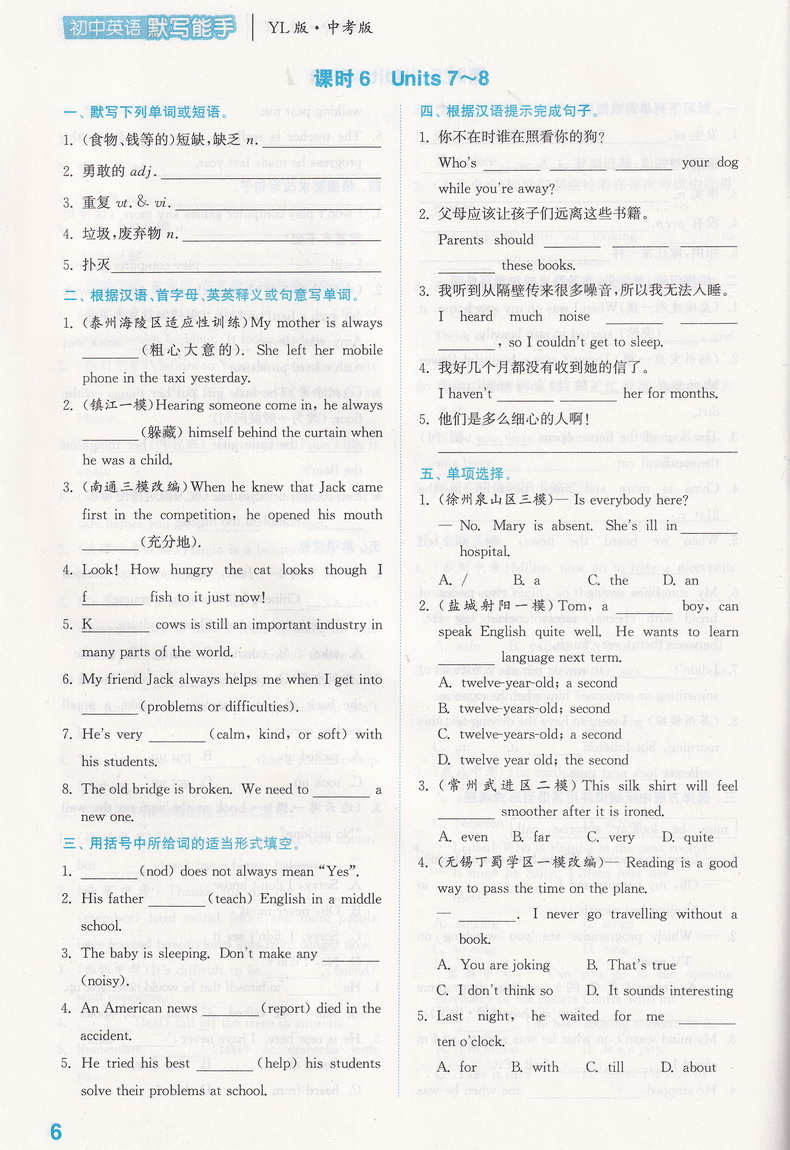 初中英语 默写能手 YL版·中考版
课时6 Units 7～8
一、默写下列单词或短语。
1. (食物、钱等的)短缺,缺乏 n. ________
2. 勇敢的 adj. ________
3. 重复 vt. & vi. ________
4. 垃圾,废弃物 n. ________
5. 扑灭 ________
二、根据汉语、首字母、英英释义或句意写单词。
1. (泰州海陵区适应性训练)My mother is always
________(粗心大意的). She left her mobile
phone in the taxi yesterday.
2. (镇江一模)Hearing someone come in, he always
________(躲藏) himself behind the curtain when
he was a child.
3. (南通三模改编)When he knew that Jack came
first in the competition, he opened his mouth
________(充分地).
4. Look! How hungry the cat looks though I
f________ fish to it just now!
5. K________ cows is still an important industry in
many parts of the world.
6. My friend Jack always helps me when I get into
________(problems or difficulties).
7. He's very ________(calm, kind, or soft) with
his students.
8. The old bridge is broken. We need to ________ a
new one.
三、用括号中所给词的适当形式填空。
1. ________(nod) does not always mean “Yes”.
2. His father ________(teach) English in a middle
school.
3. The baby is sleeping. Don't make any ________
(noisy).
4. An American news ________(report) died in the
accident.
5. He tried his best ________(help) his students
solve their problems at school.
四、根据汉语提示完成句子。
1. 你不在时谁在照看你的狗?
Who's ________ ________ ________ your dog
while you're away?
2. 父母应该让孩子们远离这些书籍。
Parents should ________ ________ ________
________ these books.
3. 我听到从隔壁传来很多噪音,所以我无法入睡。
I heard much noise ________ ________
________, so I couldn't get to sleep.
4. 我好几个月都没有收到她的信了。
I haven't ________ ________ her for months.
5. 他们是多么细心的人啊!
________
五、单项选择。
1. (徐州泉山区三模)— Is everybody here?
— No. Mary is absent. She's ill in ________
hospital.
A. / B. a C. the D. an
2. (盐城射阳一模)Tom, a ________ boy, can
speak English quite well. He wants to learn
________ language next term.
A. twelve-year-old; a second
B. twelve-years-old; second
C. twelve-years-old; a second
D. twelve year old; the second
3. (常州武进区二模)This silk shirt will feel
________ smoother after it is ironed.
A. even B. far C. very D. quite
4. (无锡丁蜀学区一模改编)— Reading is a good
way to pass the time on the plane.
— ________. I never go travelling without a
book.
A. You are joking B. That's true
C. I don't think so D. It sounds interesting
5. Last night, he waited for me ________
ten o'clock.
A. for B. with C. till D. about
6